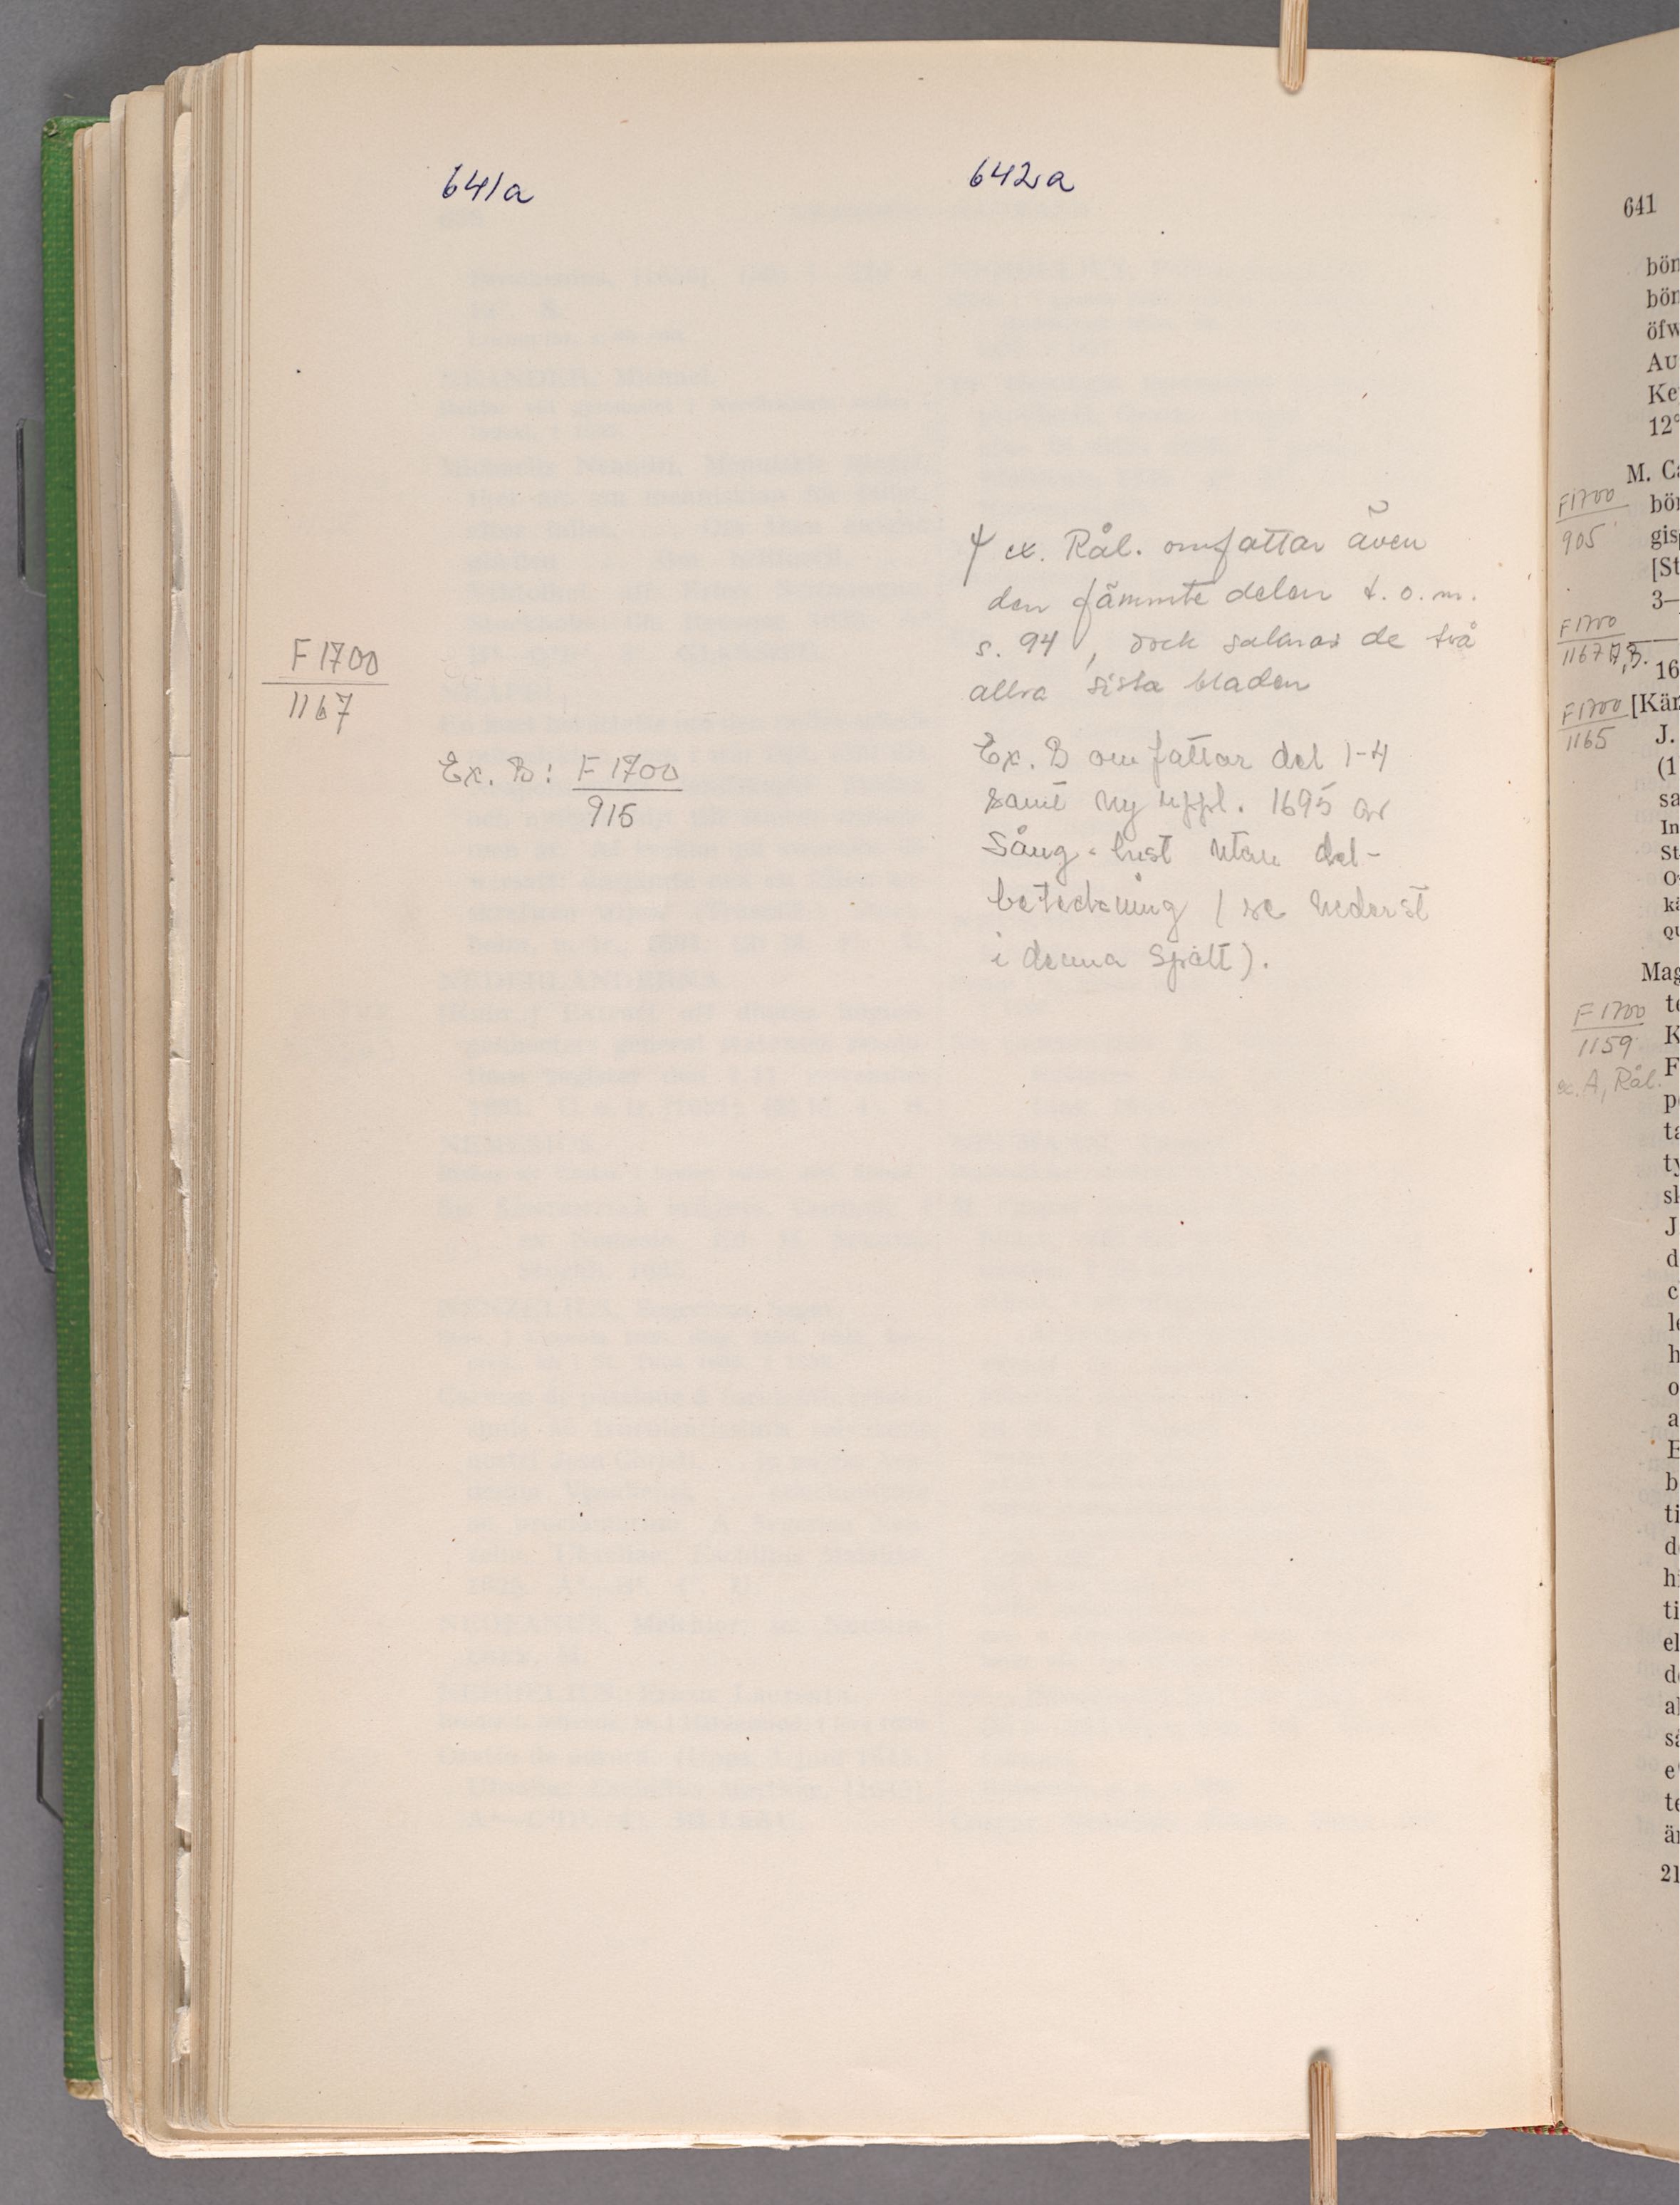 641a
642a
F 1700
1167
Ex. B: F 1700
915
ex. Rål. omfattar även
den fämmte delen t.o.m.
s. 94, dock saknas de två
allra sista bladen
Ex. B omfattar del 1-4
samt ny uppl. 1695 av
Sång-lust utan del-
beteckning (se nederst
i denna spalt).
641
bön
bön
öfw
Au
Ke
12°
M. Ca
F1700
905
bön
gis
[St
3—
F1700
1167 A,B.
16
F1700
1165
[Kär
J.
(1
sa
In
St
kä
qu
Mag
te
F 1700
1159
K
F
ex. A, Rål.
p
ta
ty
sk
J
d
c
le
h
o
a
E
b
ti
d
hi
ti
el
de
al
sä
e
te
är
21